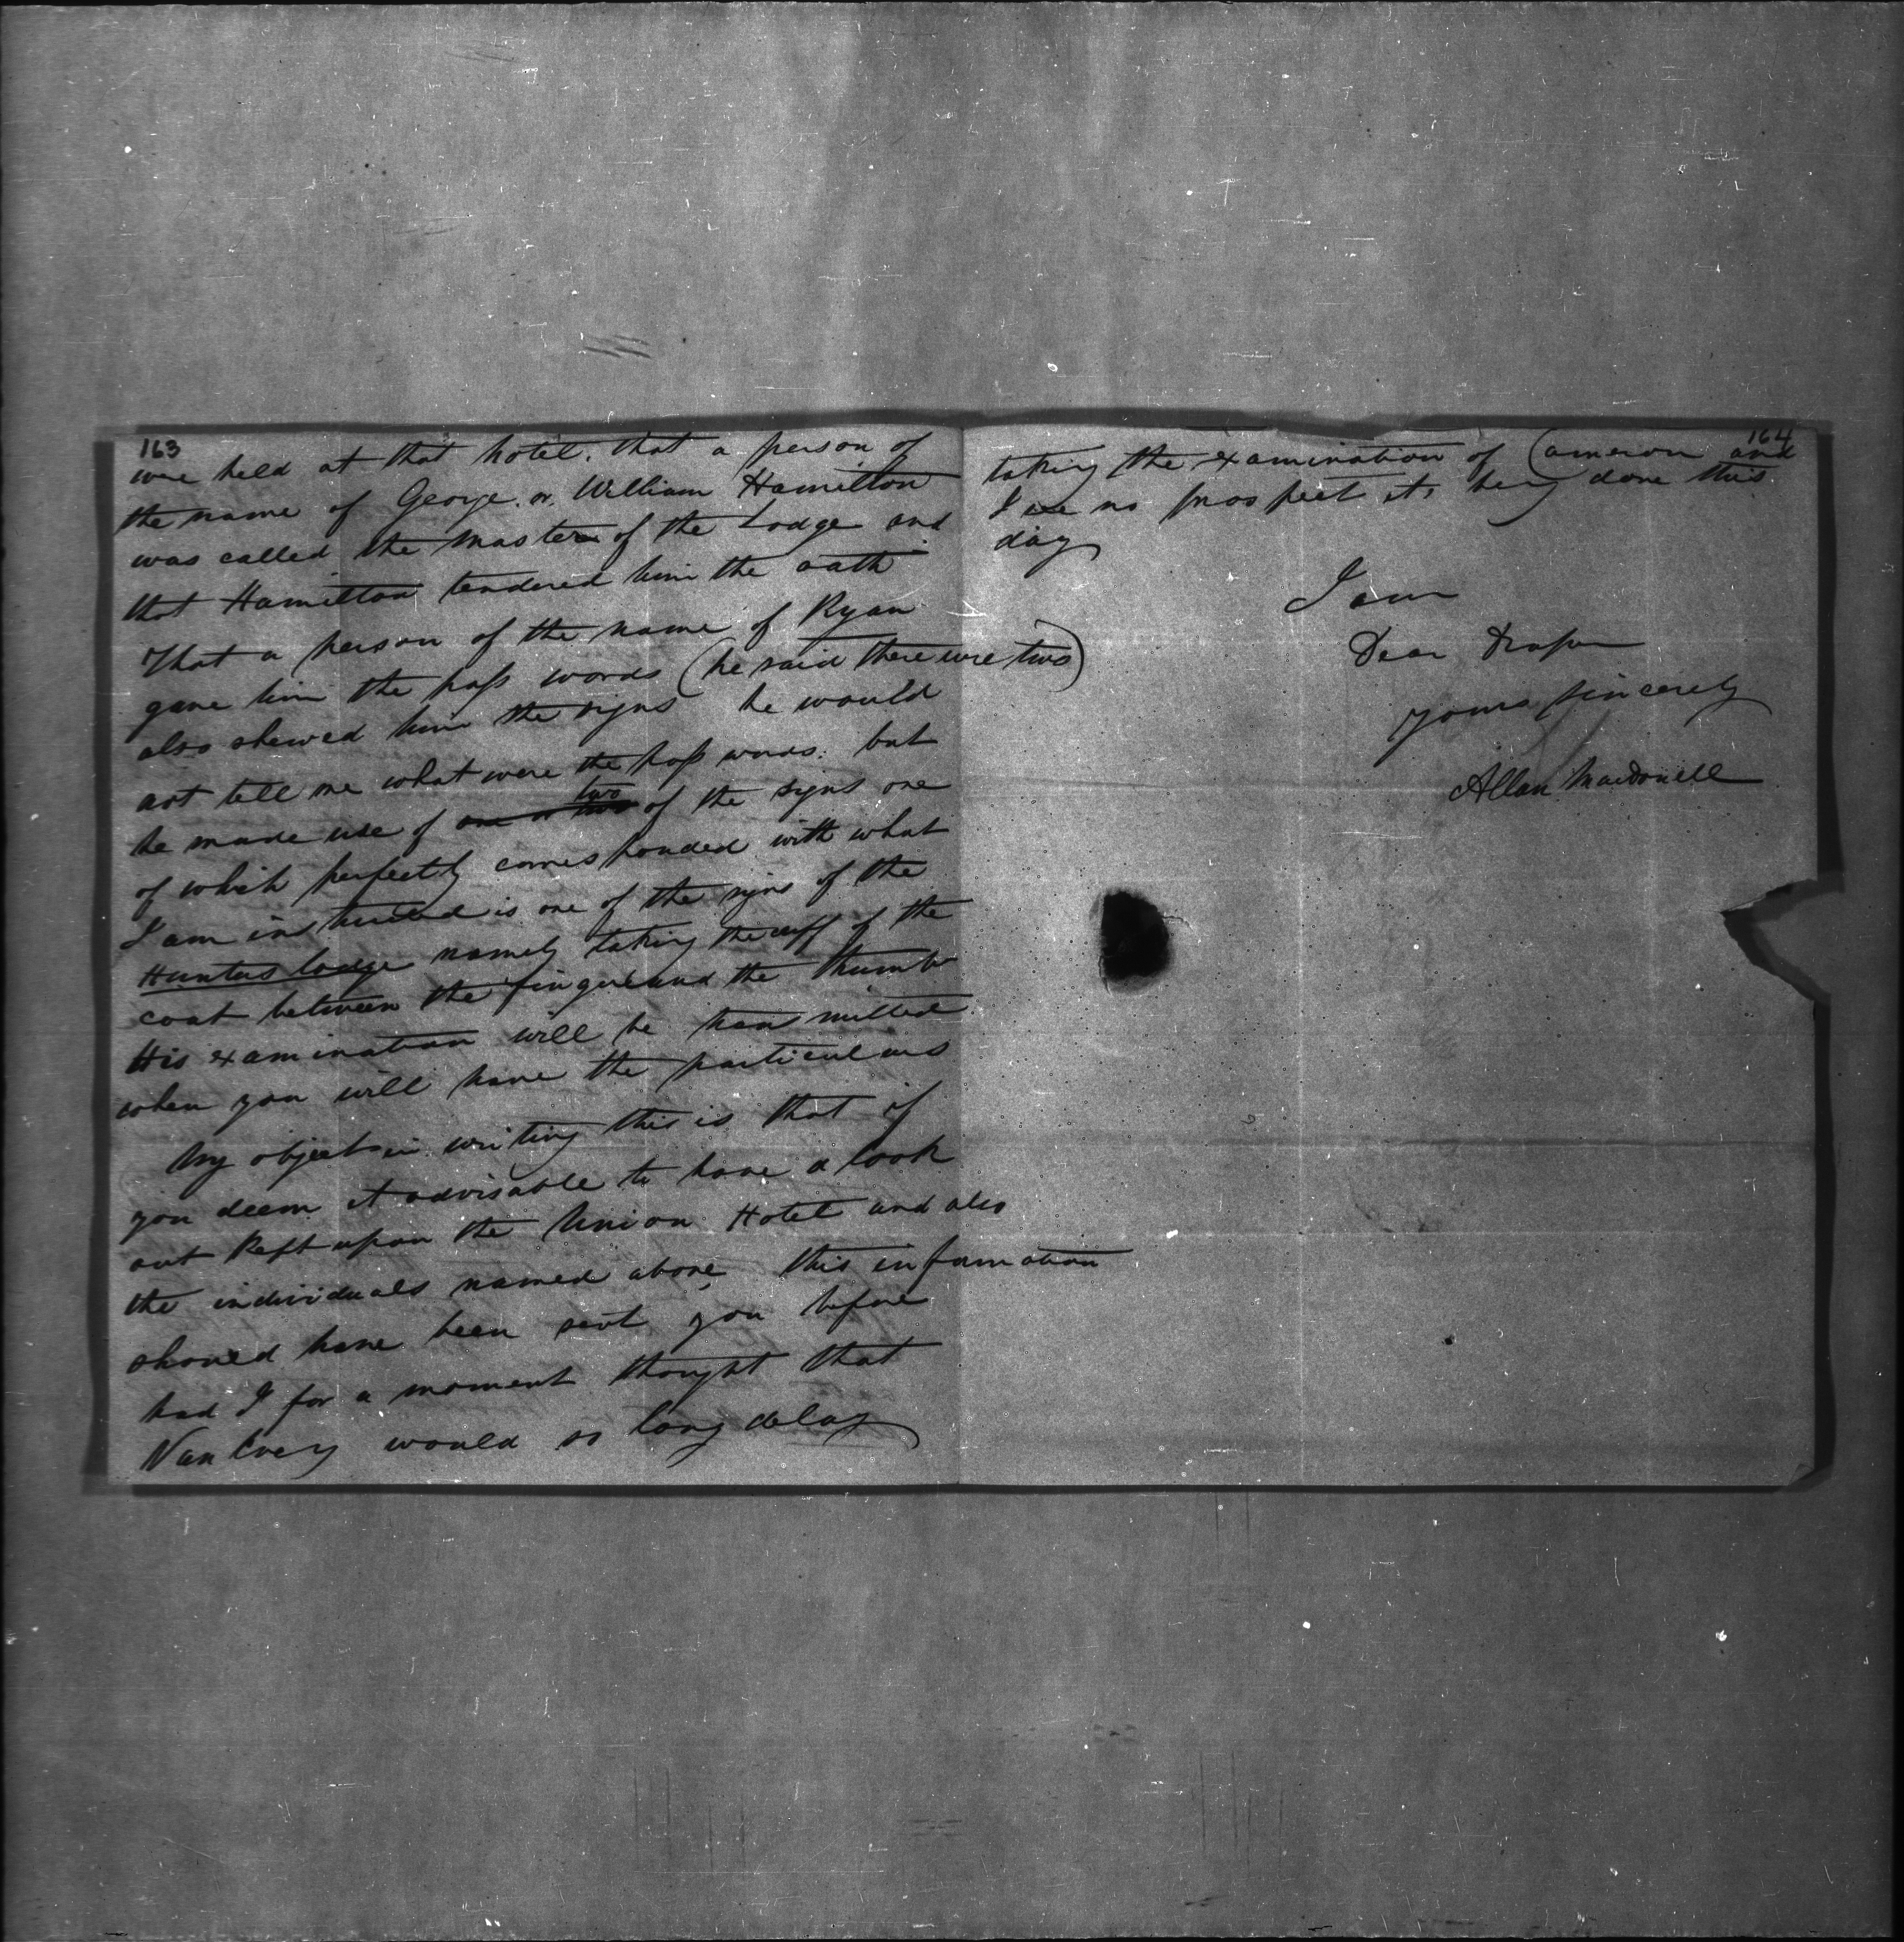 163
were held at that hotel. that a person of
the name of George or William Hamilton
was called the master of the Lodge and
that Hamilton tendered him the oath
That a person of the name of Ryan
gave him the pass words (he said there were two)
also shewed him the signs he would
not tell me what were the pass words. but
two
he made use of one or two of the signs one
of which perfectly corresponded with what
I am instructed is one of the signs of the
Hunters lodge namely taking the cuff of the
coat between the finger and the thumb
His examination will be transmitted
when you will have the particulars
My object in writing this is that if
you deem it advisable to have a look
out kept upon the Union Hotel and also
the individuals named above, this information
should have been sent you before
had I for a moment thought that
VanEvery would so long delay
164
taking the examination of Cameron and
I see no prospect its being done this
day
I am
Dear Draper
yours sincerely
Allan Macdonell